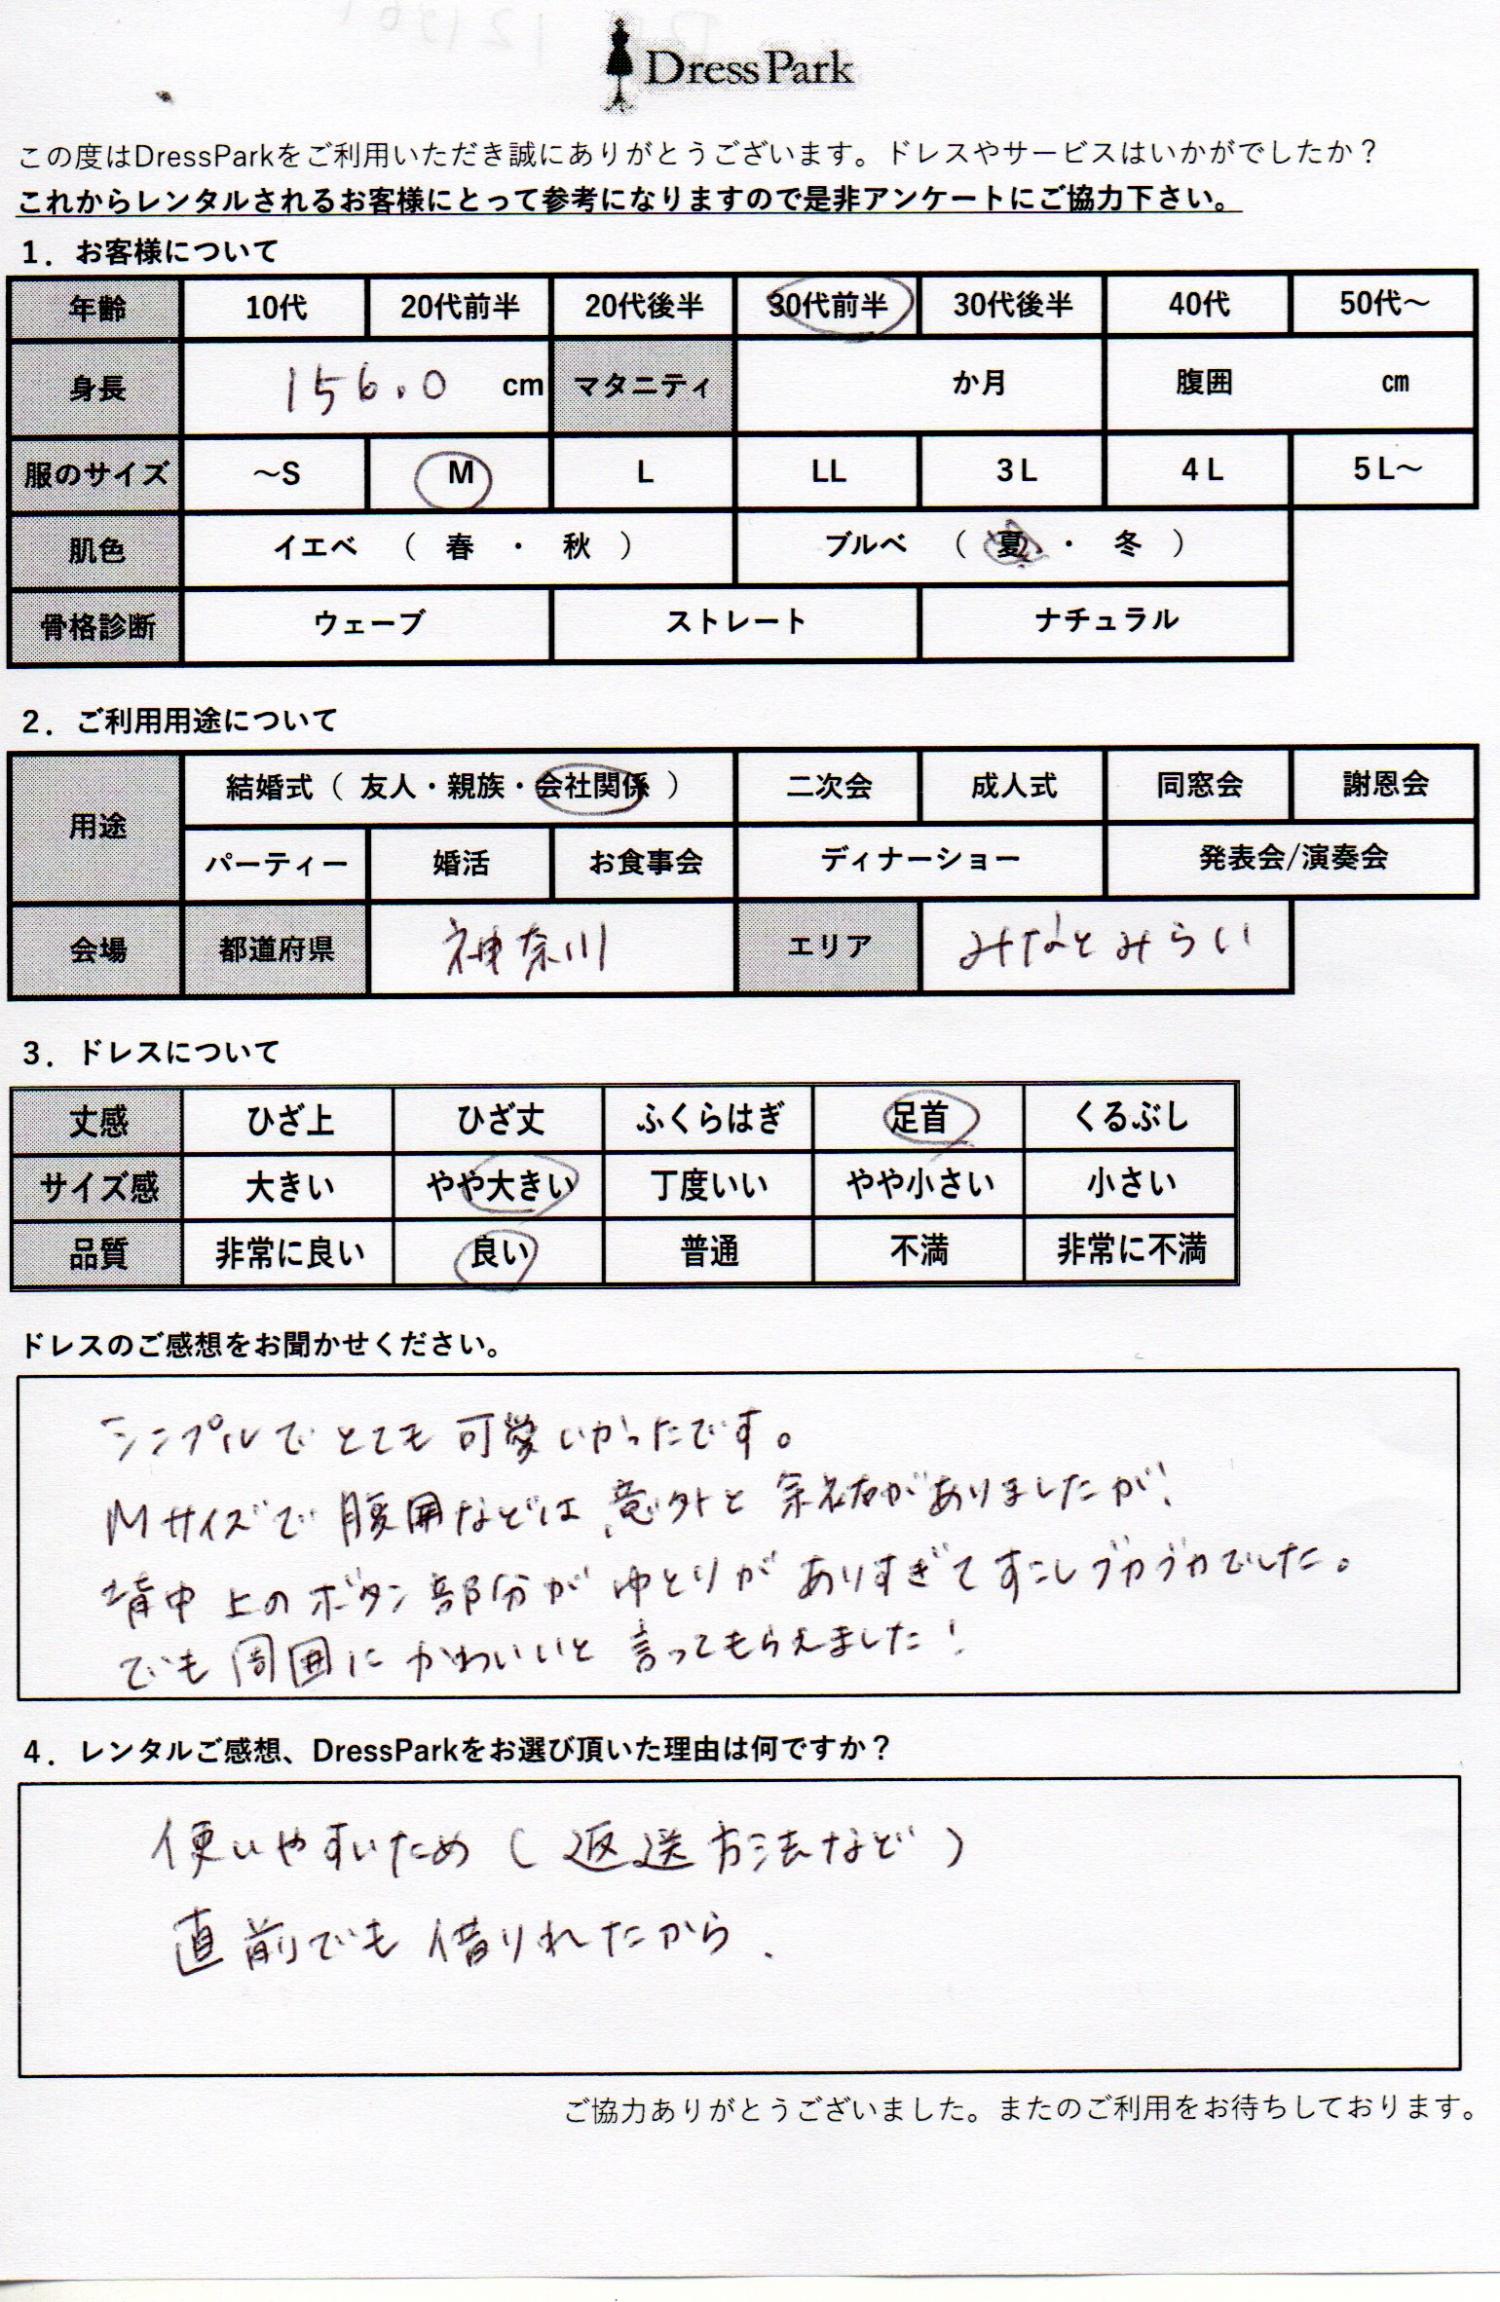 Dress Park
この度はDressParkをご利用いただき誠にありがとうございます。ドレスやサービスはいかがでしたか？
これからレンタルされるお客様にとって参考になりますので是非アンケートにご協力下さい。
1．お客様について
年齢 10代 20代前半 20代後半 30代前半 30代後半 40代 50代～
身長 156.0 cm マタニティ か月 腹囲 ㎝
服のサイズ ～S M L LL 3L 4L 5L～
肌色 イエベ （ 春 ・ 秋 ） ブルベ （ 夏 ・ 冬 ）
骨格診断 ウェーブ ストレート ナチュラル
2．ご利用用途について
用途 結婚式（ 友人・親族・会社関係 ） 二次会 成人式 同窓会 謝恩会
パーティー 婚活 お食事会 ディナーショー 発表会/演奏会
会場 都道府県 神奈川 エリア みなとみらい
3．ドレスについて
丈感 ひざ上 ひざ丈 ふくらはぎ 足首 くるぶし
サイズ感 大きい やや大きい 丁度いい やや小さい 小さい
品質 非常に良い 良い 普通 不満 非常に不満
ドレスのご感想をお聞かせください。
シンプルでとても可愛いかったです。
Mサイズで腹囲などは、意外と余裕がありましたが、
背中上のボタン部分がゆとりがありすぎてすこしブカブカでした。
でも周囲にかわいいと言ってもらえました！
4．レンタルご感想、DressParkをお選び頂いた理由は何ですか？
使いやすいため（返送方法など）
直前でも借りれたから．
ご協力ありがとうございました。またのご利用をお待ちしております。